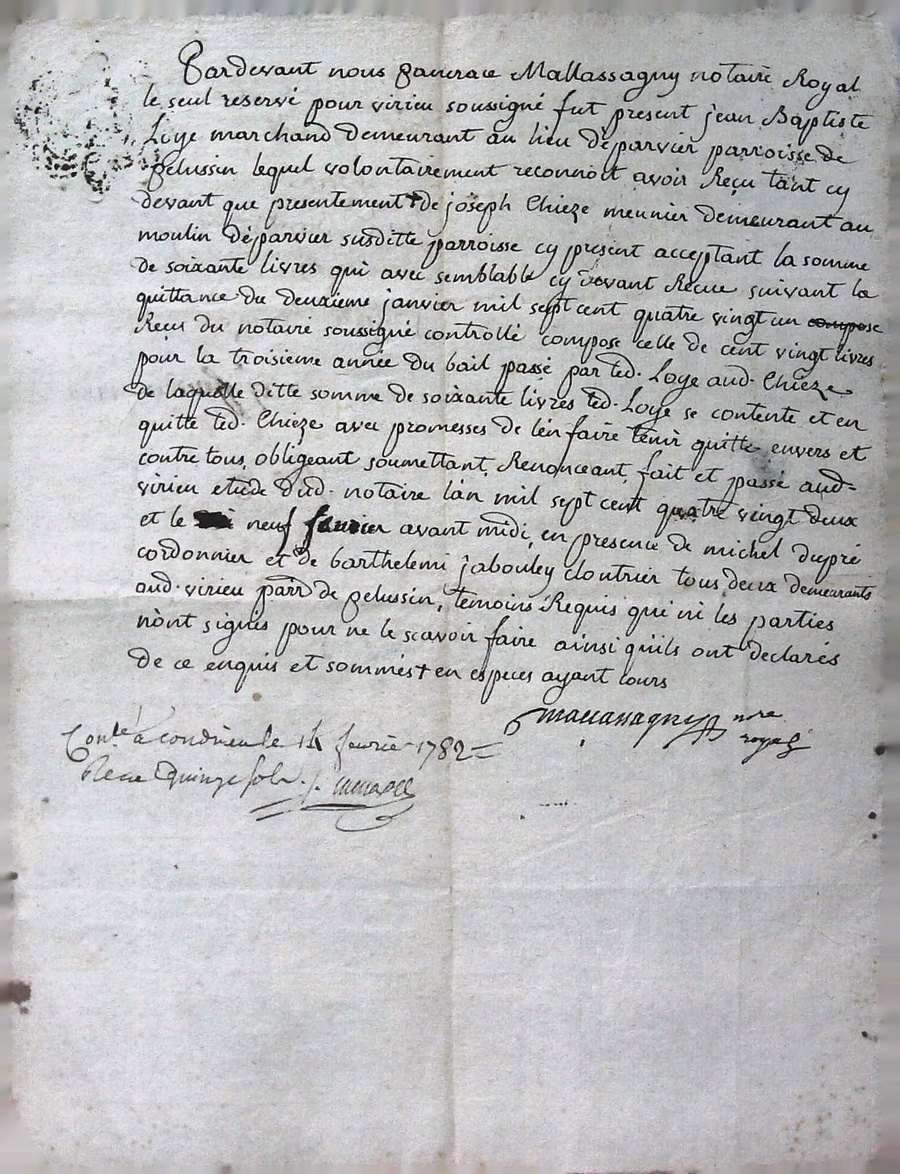 Pardevant nous pancrace Mallassagny notaire Royal
le seul reservé pour virieu soussigné fut present jean Baptiste
Loye marchand demeurant au lieu déparvier parroisse de
pelussin lequel volontairement reconnoit avoir Reçu tant cy
devant que presentement + de joseph Chieze meunier demeurant au
moulin déparvier susditte parroisse cy present acceptant la somme
de soixante livres qui avec semblable cy devant Recue suivant la
quittance du deuxieme janvier mil sept cent quatre vingt un compose
Reçu du notaire soussigné controllé compose celle de cent vingt livres
pour la troisieme année du bail passé par led. Loye aud. Chieze
de laquelle ditte somme de soixante livres led. Loye se contente et en
quitte led. Chieze avec promesses de l'en faire tenir quitte envers et
contre tous, obligeant soumettant, Renonceant, fait et passé aud.
virieu etude dud. notaire l'an mil sept cent quatre vingt deux
et le neuf fevrier avant midi, en presence de michel dupré
cordonnier et de barthelemi jabouley cloutrier tous deux demeurants
aud. virieu parr de pelussin, temoins Requis qui ni les parties
n'ont signés pour ne le scavoir faire ainsi qu'ils ont declarés
de ce enquis et sommés + en especes ayant cours
Mallassagny nore
royal
Conlé a condrieu le 14 fevrier 1782
Recu quinze sols